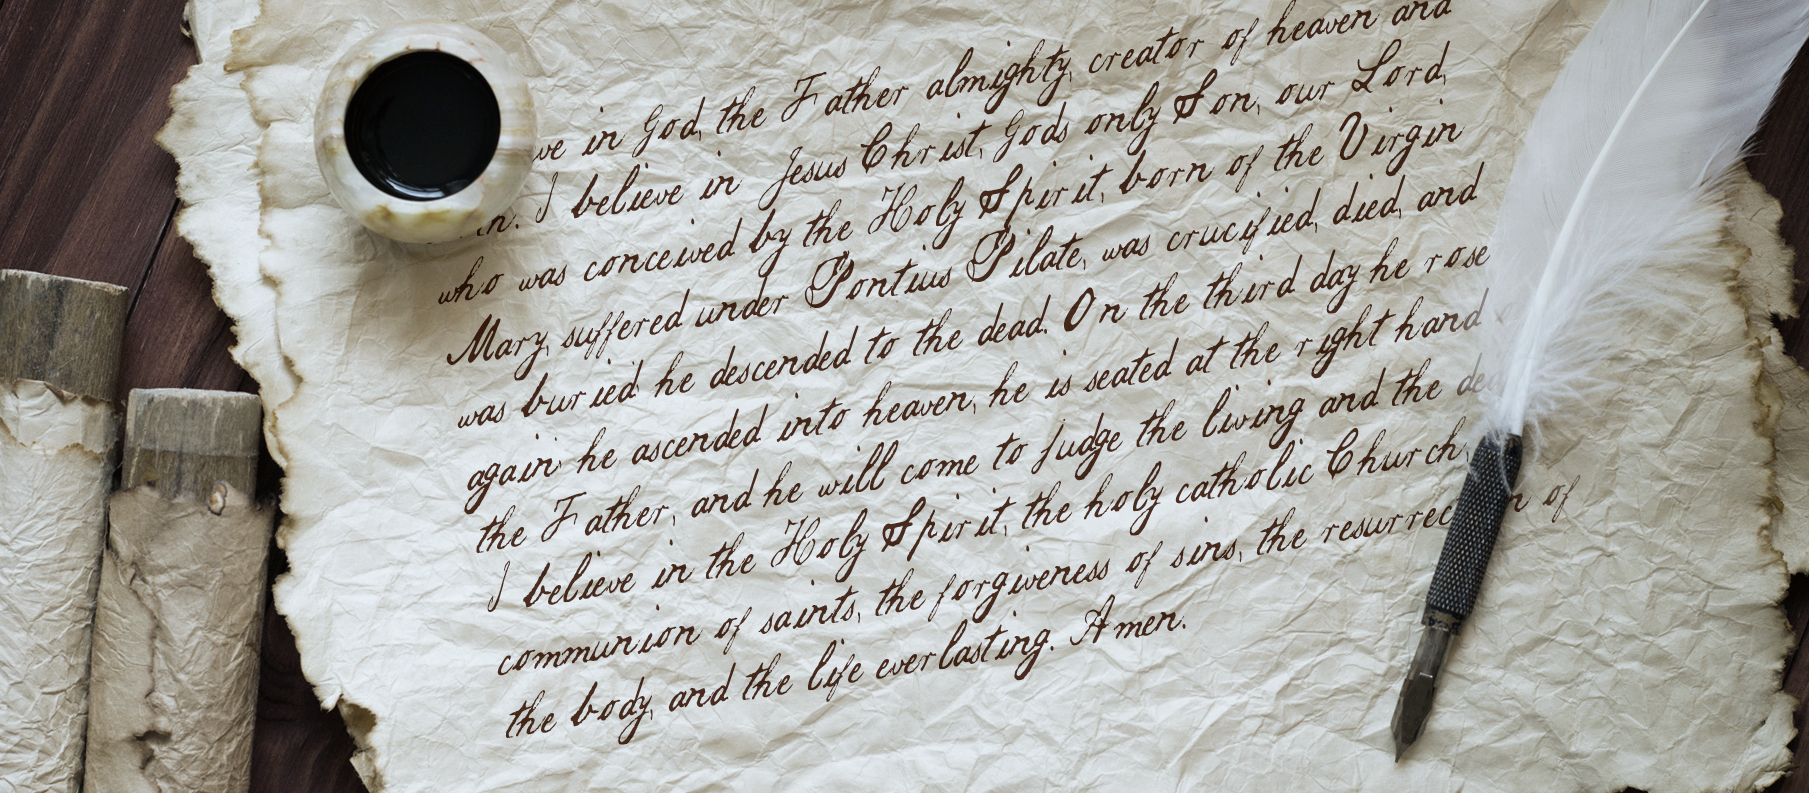 in God, the Father almighty, creator of heaven and
I believe in Jesus Christ, Gods only Son, our Lord,
who was conceived by the Holy Spirit, born of the Virgin
Mary, suffered under Pontius Pilate, was crucified, died, and
was buried he descended to the dead. On the third day he rose
again he ascended into heaven, he is seated at the right hand
the Father, and he will come to judge the living and the
I believe in the Holy Spirit, the holy catholic Church,
communion of saints, the forgiveness of sins, the of
the body, and the life everlasting. Amen.